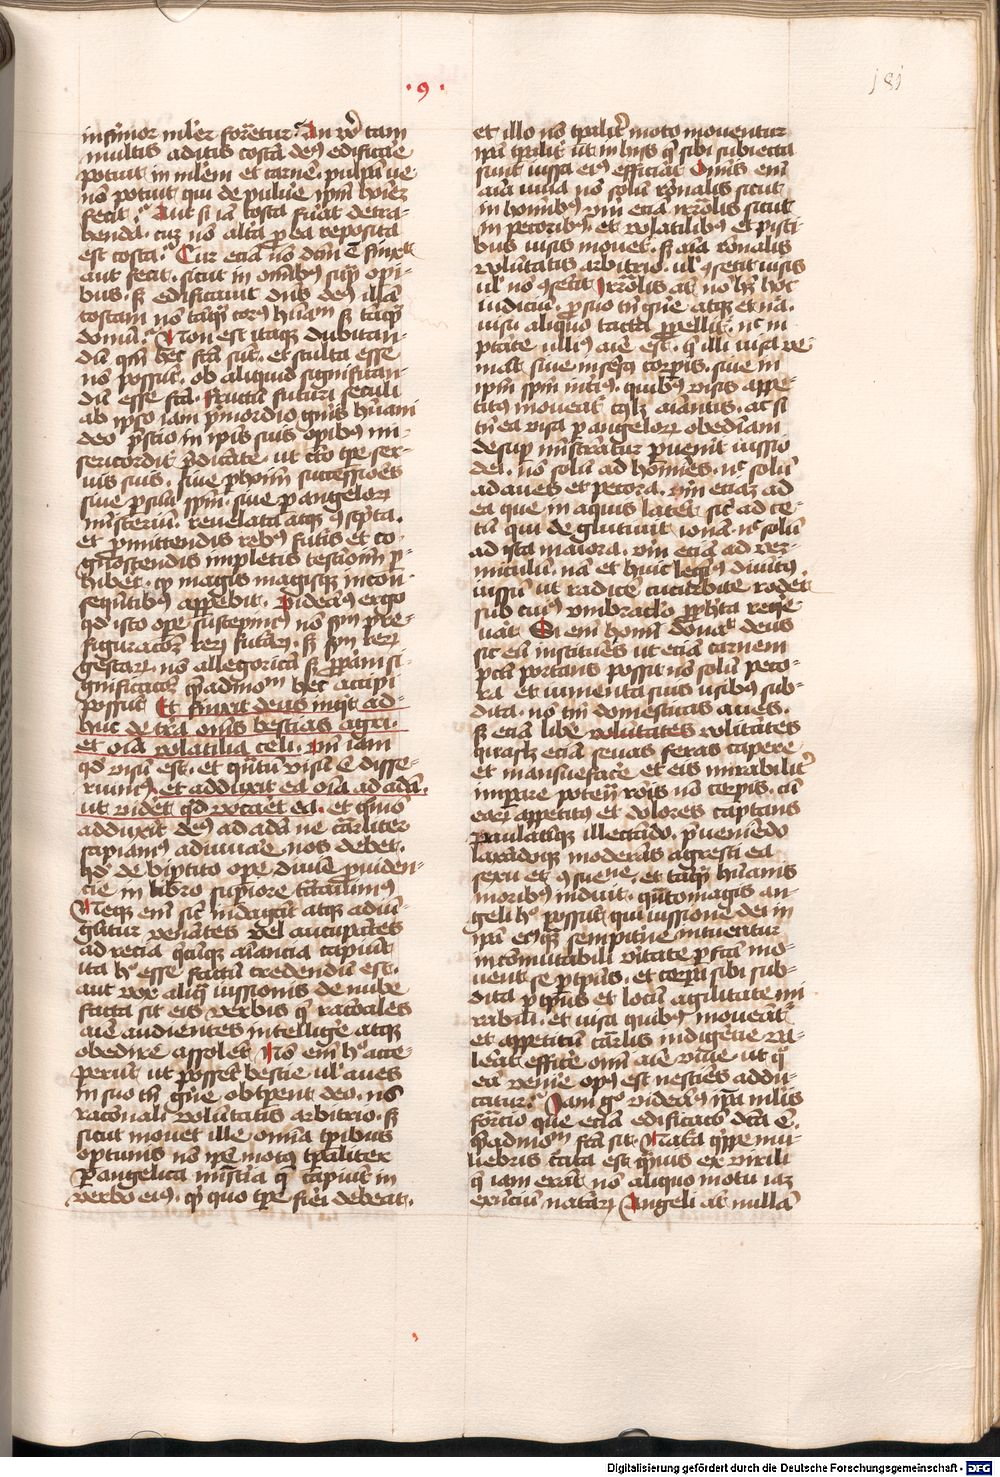 ·9·
181
infirmior mulier formaretur. An vero tam
multis additis costam deus edificare
potuit in mulierem et carnem pulpamve
non potuit qui de pulvere ipsum hominem
fecit. Aut si iam costa fuerat detra-
henda. cur non altera pro ea reposita
est costa. Cur etiam non dictum est finxit
aut fecit. sicut in omnibus supra operi-
bus. sed edificavit dominus deus illam
costam non tamquam corpus humanum sed tamquam
domum. Non est itaque dubitan-
dum quoniam hec facta sunt. et stulta esse
non possunt. ob aliquid significan-
dum esse facta. fructum futuri seculi
ab ipso iam primordio generis humani
deo prescio in ipsis suis operibus mi-
sericorditer predicante. ut certo tempore ser-
vis suis. sive per hominum successiones
sive per suum spiritum. sive per angelorum
ministerium. revelata atque conscripta.
et promittendis rebus futuris et co-
gnoscendis impletis testimonium per-
hibet. quod magis magisque in con-
sequentibus apparebit. Videamus ergo
quod isto opere suscepimus non secundum pre-
figurationem rerum futurarum. sed secundum rerum
gestarum. non allegoricam sed propriam si-
gnificationem quemadmodum hec accipi
possunt. Et finxit deus inquit ad-
huc de terra omnes bestias agri.
et omnia volatilia celi. unde iam
quod visum est. et quantum visum est disse-
ruimus. et adduxit ea omnia ad adam.
ut videret quid vocaret ea. et quomodo
adduxerit deus ad adam ne carnaliter
sapiamus adiuvare nos debet.
quod de bipertito opere divine providen-
cie in libro superiore tractavimus
Neque enim sicut indagant atque adiu-
guntur venantes vel aucupantes
ad recia quecumque animancia capiunt
ita hoc esse factum credendum est.
aut vox aliqua iussionis de nube
facta sit eis verbis que racionales
anime audientes intelligere atque
obedire assolent. Non enim hoc acce-
perunt ut possent bestie vel aves
in suo tamen genere obtemperent deo. non
racionali voluntatis arbitrio. sed
sicut movet ille omnia temporibus
oportunis non ipse motus temporaliter
per angelica ministeria que capiunt in
verbo eius. quid quo tempore fieri debeat.
et illo non temporaliter moto moventur
ipsa temporaliter ut in hiis que sibi subiecta
sunt iussa eius efficiant. Omnis enim
anima viva non solum racionalis sicut
in hominibus verum etiam irrationalis sicut
in pecoribus. et volatilibus et pisci-
bus visis movetur. sed anima racionalis
voluntatis arbitrio. vel consentit visis
vel non consentit. Irrationalis autem non habet hoc
iudicium. pro suo tamen genere atque natura.
visu aliquo tacta propellitur. nec in
potestate ullius anime est. que illi visa ve-
niant sive in sensum corporis. sive in
ipsum spiritum interius. quibus visis appe-
titus moveatur cuiuslibet animantis. ac si
cum ea visa per angelorum obedienciam
desuper ministrantur pervenit iussio
dei. non solum ad homines. nec solum
ad aves et pecora. verum etiam ad
ea que in aquis latent sicut ad ce-
tum qui deglutivit ionam. nec solum
ad ista maiora. verum etiam ad ver-
miculum. nam et huic legimus divinitus
iussum ut radicem cucurbite roderet
sub cuius umbraculo propheta requie-
verat. Si enim homini donavit deus
sic eum instituens ut etiam carnem
peccati portans possit non solum peco-
ra et iumenta suis usibus sub-
dita. non tantum domesticas aves.
sed etiam libere volitantes volitantes
quaslibet etiam sevas feras capere
et mansuefacere et eis mirabiliter
imperare potencia racionis non corporis. cum
earum appetitus et dolores captans
paulatimque illectando. premendo
laxandoque moderans agresti ea
exuit consuetudine. et tamquam humanis
moribus induit. quantomagis an-
geli hoc possunt qui iussione dei in
ipsa eiusque sempiterne intuentur
incommutabili veritate perfecta mo-
vent se per tempus. et corpora sibi sub-
dita per tempus et locum agilitate mi-
rabili. et visa quibus moveatur
et appetitum carnalis indigencie va-
leant efficere omni anime vive ut quo
eam venire opus est nesciens addu-
catur. Iam ergo videamus ipsa mulieris
formacio que etiam edificatio dicta est.
quemadmodum facta sit. Natura quippe mu-
liebris creata est quamvis ex virili
que iam erat non aliquo motu iam
existencium naturarum. Angeli autem nullam
Digitalisierung gefördert durch die Deutsche Forschungsgemeinschaft - DFG